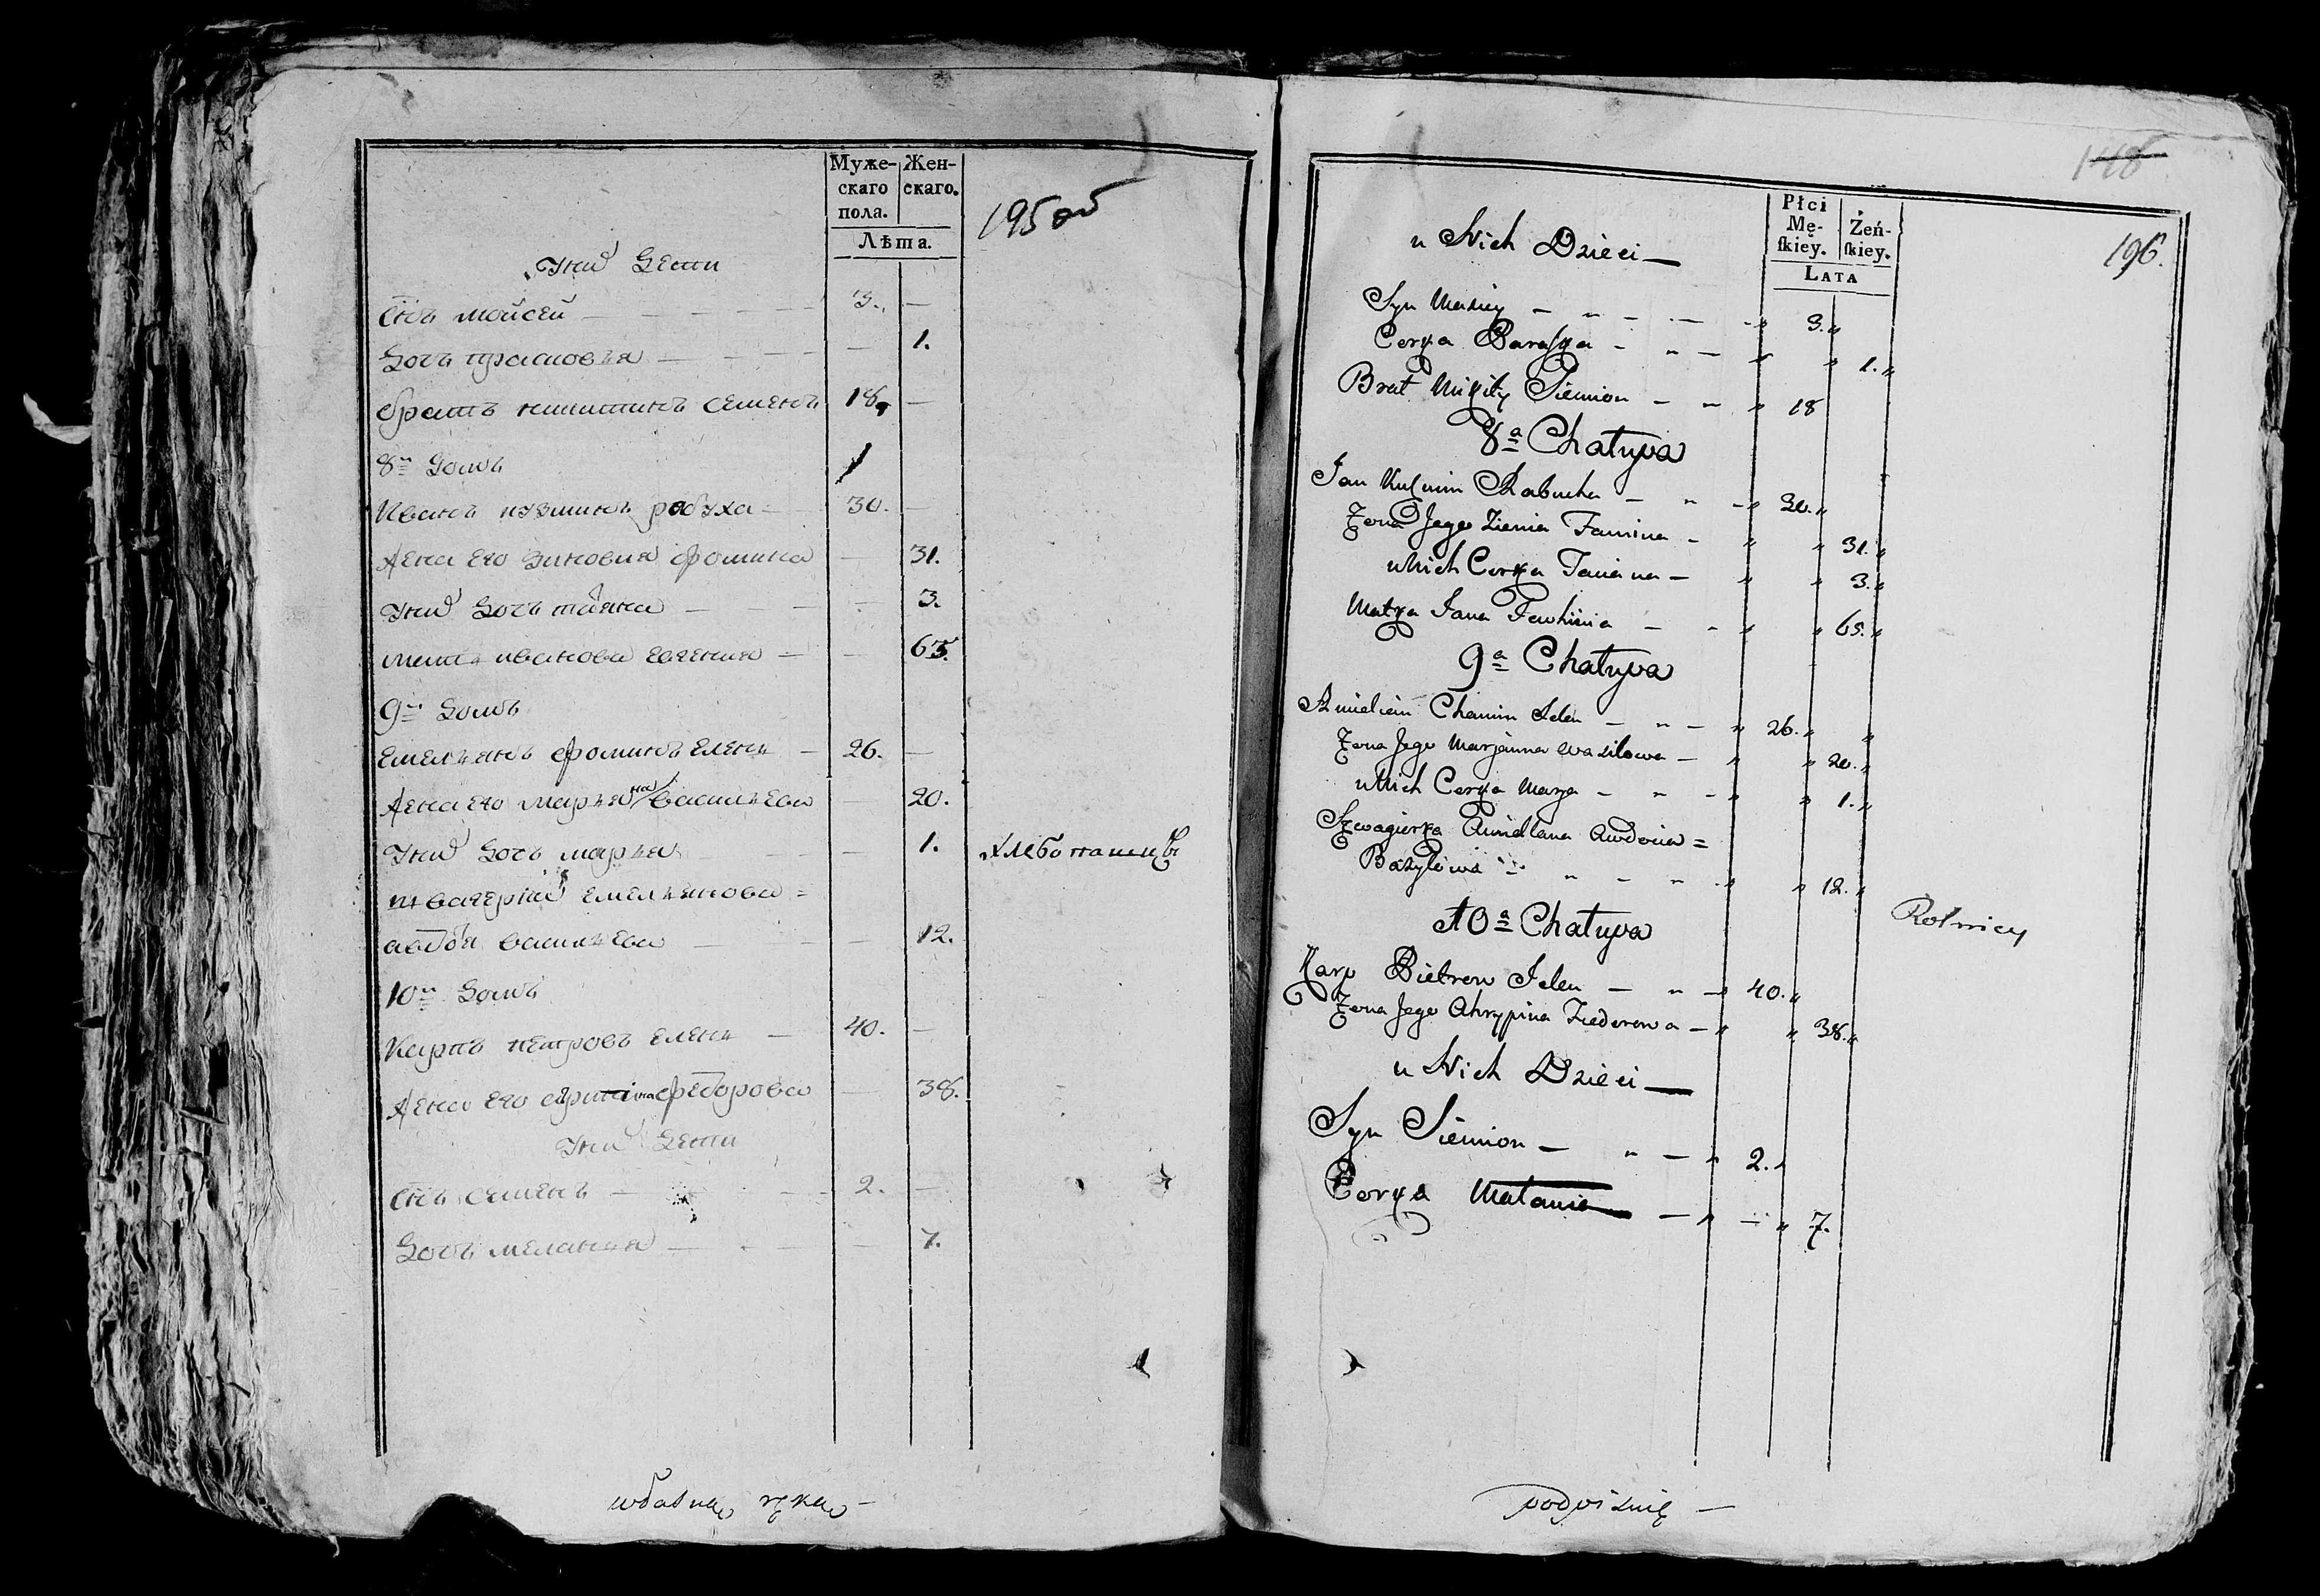 Муже-
скаго
пола.
Жен-
скаго.
Лѣта.
195 об
Унихъ Дети
Снъ Мойсей — 3. —
Дочь Прасковья — — 1.
братъ никитинъ Семенъ 18. —
8й Домъ
Иванъ кузминъ рабуха — 30. —
Жена Его Зиновия фомина — 31.
Унихъ Дочь татьяна — — 3.
мать иванова Евгения — — 65.
9й Домъ
Емельянъ фоминъ Елень — 26. —
Жена Его Марьяна васильева — 20.
Унихъ Дочь Марья — 1.
швагерка Емельянова =
авдотья васильева — — 12.
Хлебопашцы
10й Домъ
Карпъ петровъ Елень — 40. —
Жена Его агрипина федорова — 38.
Унихъ Дети
Снъ Семенъ — 2. —
Дочь меланья — — 7.
własną ręką —
148
196.
Płci
Mę-
ſkiey.
Żeń-
ſkiey.
LATA
u Nich Dzieci —
Syn Maisiey — 3.
Corka Paraska — 1.
Brat Mikity Siemion — 18
8a Chatupa
Jan Kuźmin Rabucha — 30.
Żona Jego Zienia Famina — 31.
u Nich Corka Taciana — 3.
Matka Jana Jewhinia — 65.
9a Chatupa
Amieliein Chamin Jelen — 26.
Żona Jego Marjanna Wasilowa — 20.
u Nich Corka Marja — 1.
Szwagierka Amiellana Awdocia =
Bazylowa — 12.
Rolnicy
10a Chatupa
Karp Pietrow Jelen — 40.
Żona Jego Ahrypina Fiedorowa — 38.
u Nich Dzieci —
Syn Siemion — 2.
Corka Małania — 7.
podpisuię —